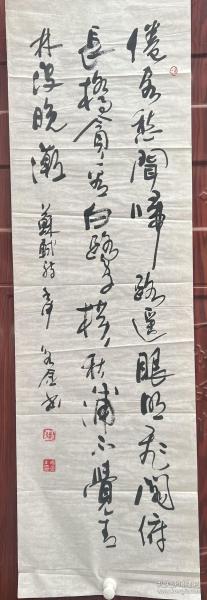 倦客愁聞歸路遥眼明飛閣俯
長橋貪看白鷺横秋浦不覺青
林没晚潮 蘇軾詩 書